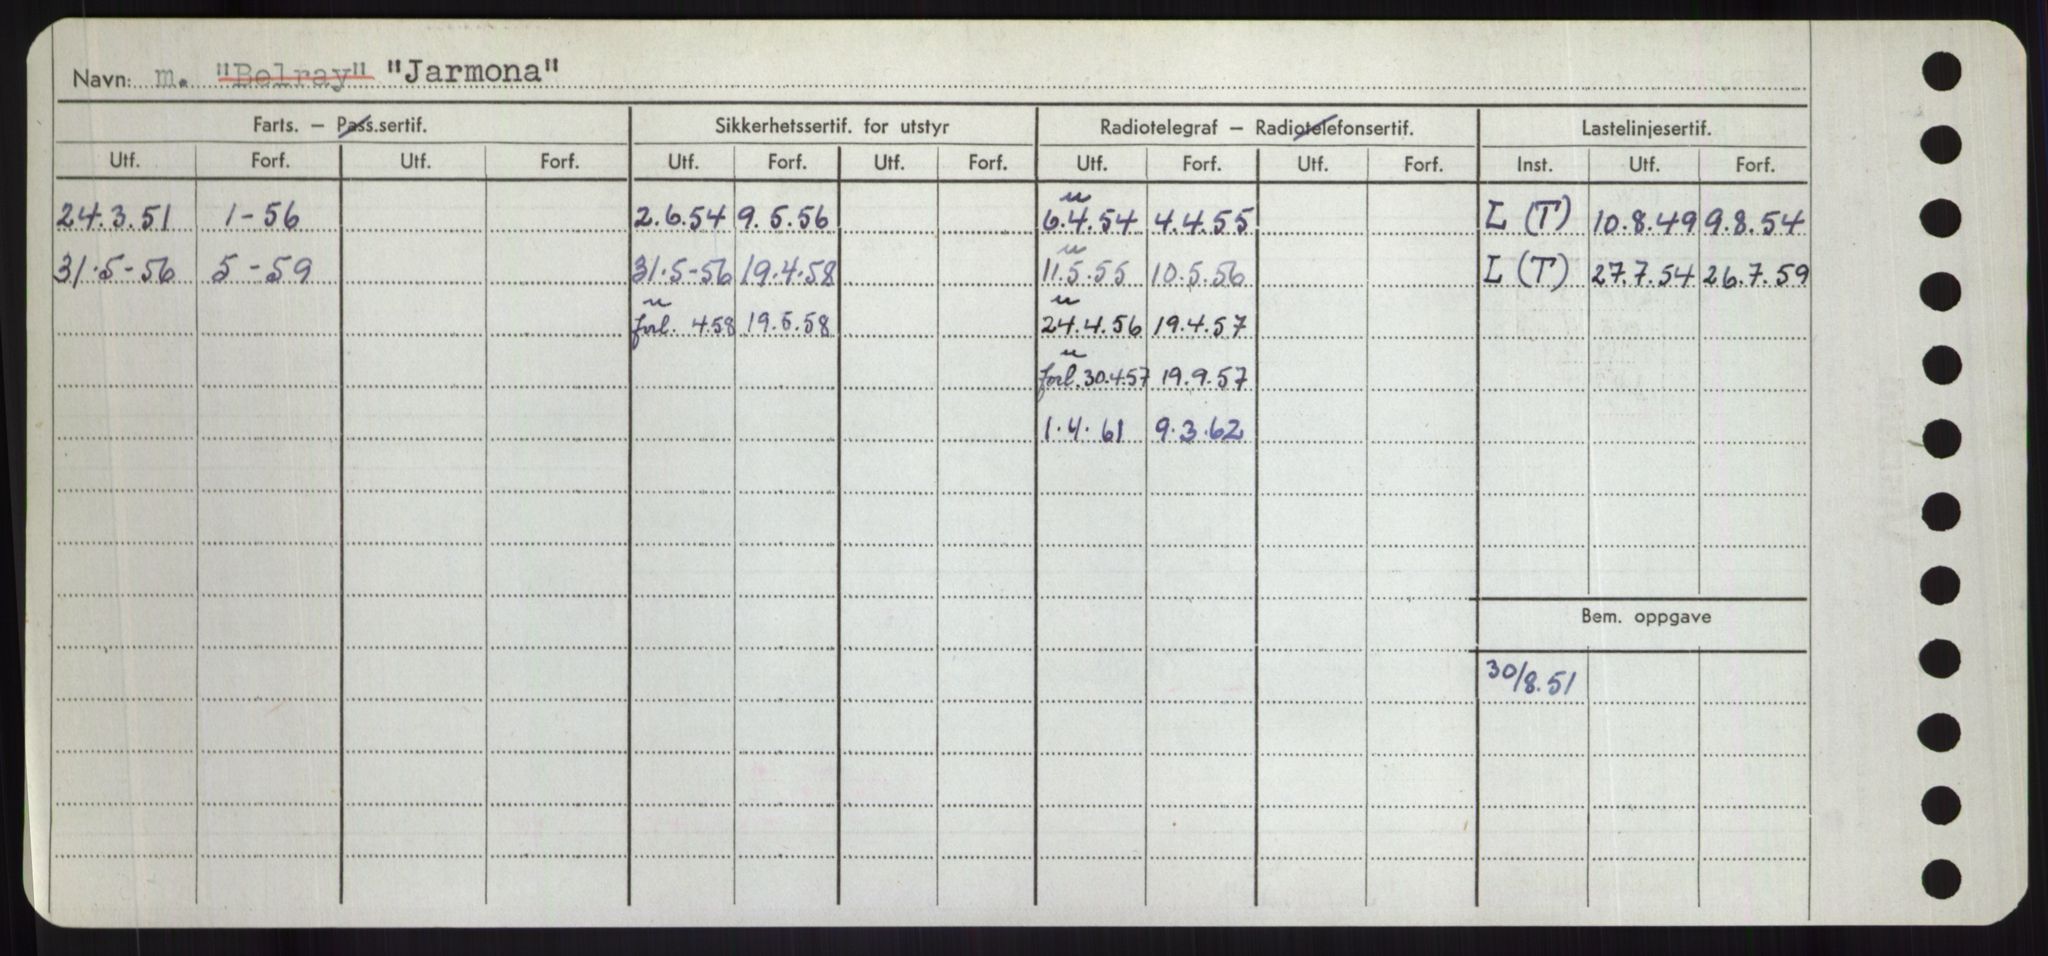 Navn: m. "Belray" "Jarmona"
Farts. – Pass.sertif. Sikkerhetssertif. for utstyr Radiotelegraf – Radiotelefonsertif. Lastelinjesertif.
Utf. Forf. Utf. Forf. Utf. Forf. Utf. Forf. Utf. Forf. Utf. Forf. Inst. Utf. Forf.
24.3.51 1-56 2.6.54 9.5.56 6.4.54 4.4.55 L (T) 10.8.49 9.8.54
31.5-56 5-59 31.5-56 19.4.58 11.5.55 10.5.56 L (T) 27.7.54 26.7.59
forl. 4.58 19.5.58 24.4.56 19.4.57
forl. 30.4.57 19.9.57
1.4.61 9.3.62
Bem. oppgave
30/8.51